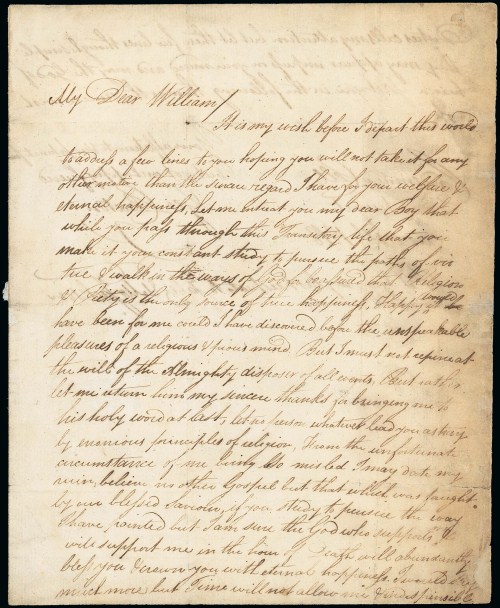 My Dear William/
It is my wish before I depart this world
to address a few lines to you hoping you will not take it for any
other motive than the sincere regard I have for your welfare &
eternal happiness, Let me entreat you my dear Boy that
while you pass through this Transitory life that you
make it your constant study to pursue the paths of vir
tue & walk in the ways of God for be assured that Religion
& Piety is the only source of true happiness, Happy would
have been for me could I have discovered before the unspeakable
pleasures of a religious & pious mind But I must not repine at
the will of the Almighty disposer of all events, But rather
let me return him my sincere thanks for bringing me to
his holy word at last, let no person whatever lead you astray
by erronious principles of religion, From the unfortunate
circumstance of me being So misled I may date my
ruin, believe no other Gospel but that which was taught
by our blessed Saviour, if you study to pursue the way
I have pointed but I am sure the God who supports &
will support me in the hour of Death will abundantly
bless you & crown you with eternal happiness I would say
much more but Time will not allow me